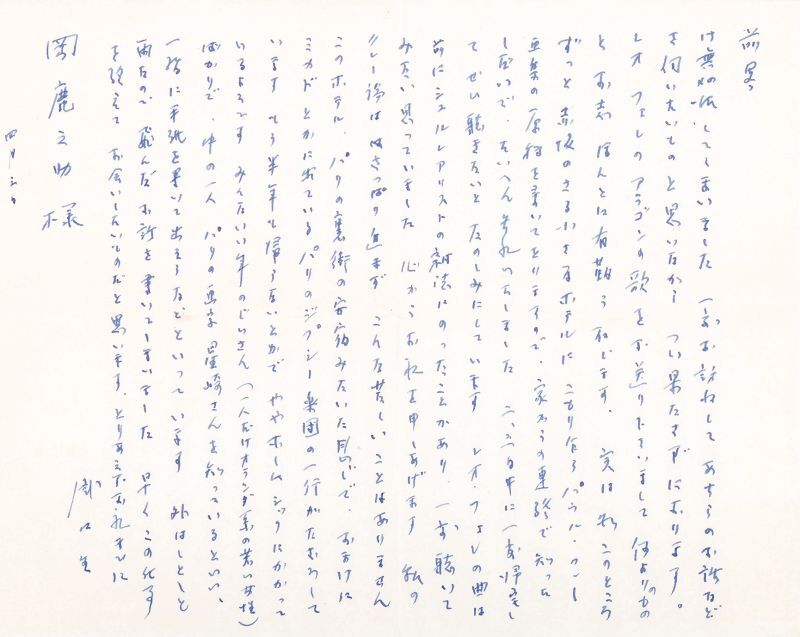 前略
け無沙汰してしまいました 一度お訪ねして あちらのお話など
を伺いたいものと思いながら つい果たさずにおります。
レオ フェレのアラゴンの歌をお送り下さいまして 何よりのもの
とお志 ほんとに有難う存じます。 実は私 このところ
ずっと赤坂のさる小さなホテルに こもり乍ら パウル・クレー
画集の原稿を書いておりますので、家からの連絡で知った
し度いで、たいへん失礼いたしました 二、三日中に一度帰宅し
て ぜひ聴きたいと たのしみにしています レオ・フェレの曲は
前にシュルレアリストの雑誌にのったことがあり、一度 聴いて
みたい思っていました 心からお礼を申しあげます 私の
クレー論はさっぱり進まず こんな苦しいことはありません
このホテル、パリの裏街の安宿みたいた感じで、おまけに
ミカドとかに出ているパリのジプシー楽団の一行がたむろして
います もう半年も帰らないとかで ややホームシックにかかって
いるようです みんないい年のじいさん (一人だけオランダ系の若い女性)
ばかりで、中の一人 パリの画家 星崎さんを知っているといい、
一緒に手紙を書いて出そうなどといって います 外はしとしと
雨なので 飛んだお話を書いてしまいました 早くこの仕事
を終えて お会いしたいものだと思います、とりあえずお礼まで
瀧口生
岡鹿之助様